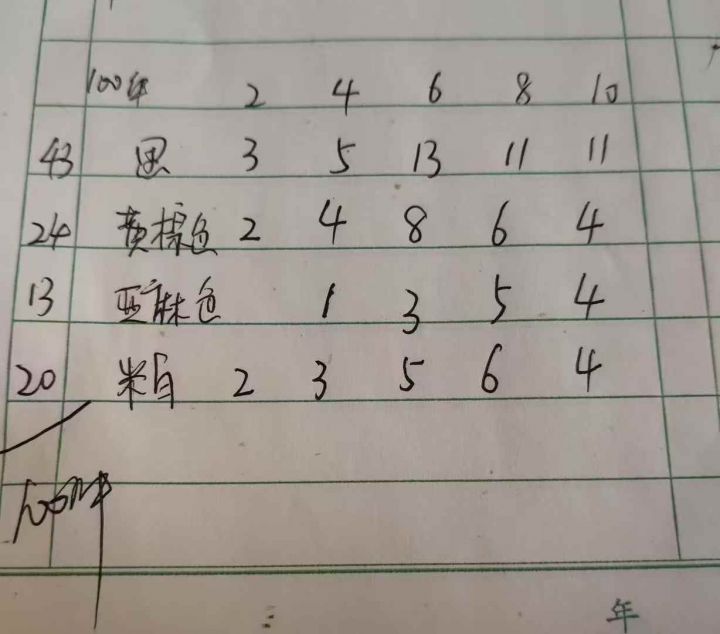 100件 2 4 6 8 10
43 黑 3 5 13 11 11
24 黄棕色 2 4 8 6 4
13 亚麻色 1 3 5 4
20 米白 2 3 5 6 4
100件
年